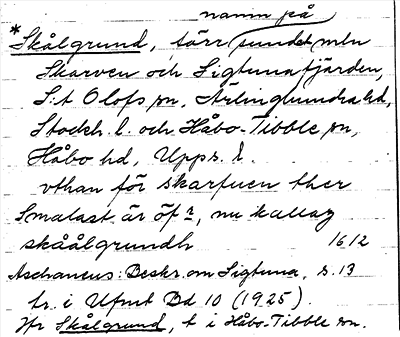 namn på
*Skålgrund, törr sundet mln
Skarven och Sigtunafjärden,
S:t Olofs sn, Ärlinghundra hd,
Stockh. l. och Håbo-Tibble sn,
Håbo hd, Upps. l.
vthan för skarfuen ther
Smalast är öf, nu kallag
skåålgrundh 1612
Aschaneus: Beskr. om Sigtuna, s. 13
tr. i Ufmt Bd 10 (1925).
Jfr Skålgrund, t i Håbo-Tibble sn.